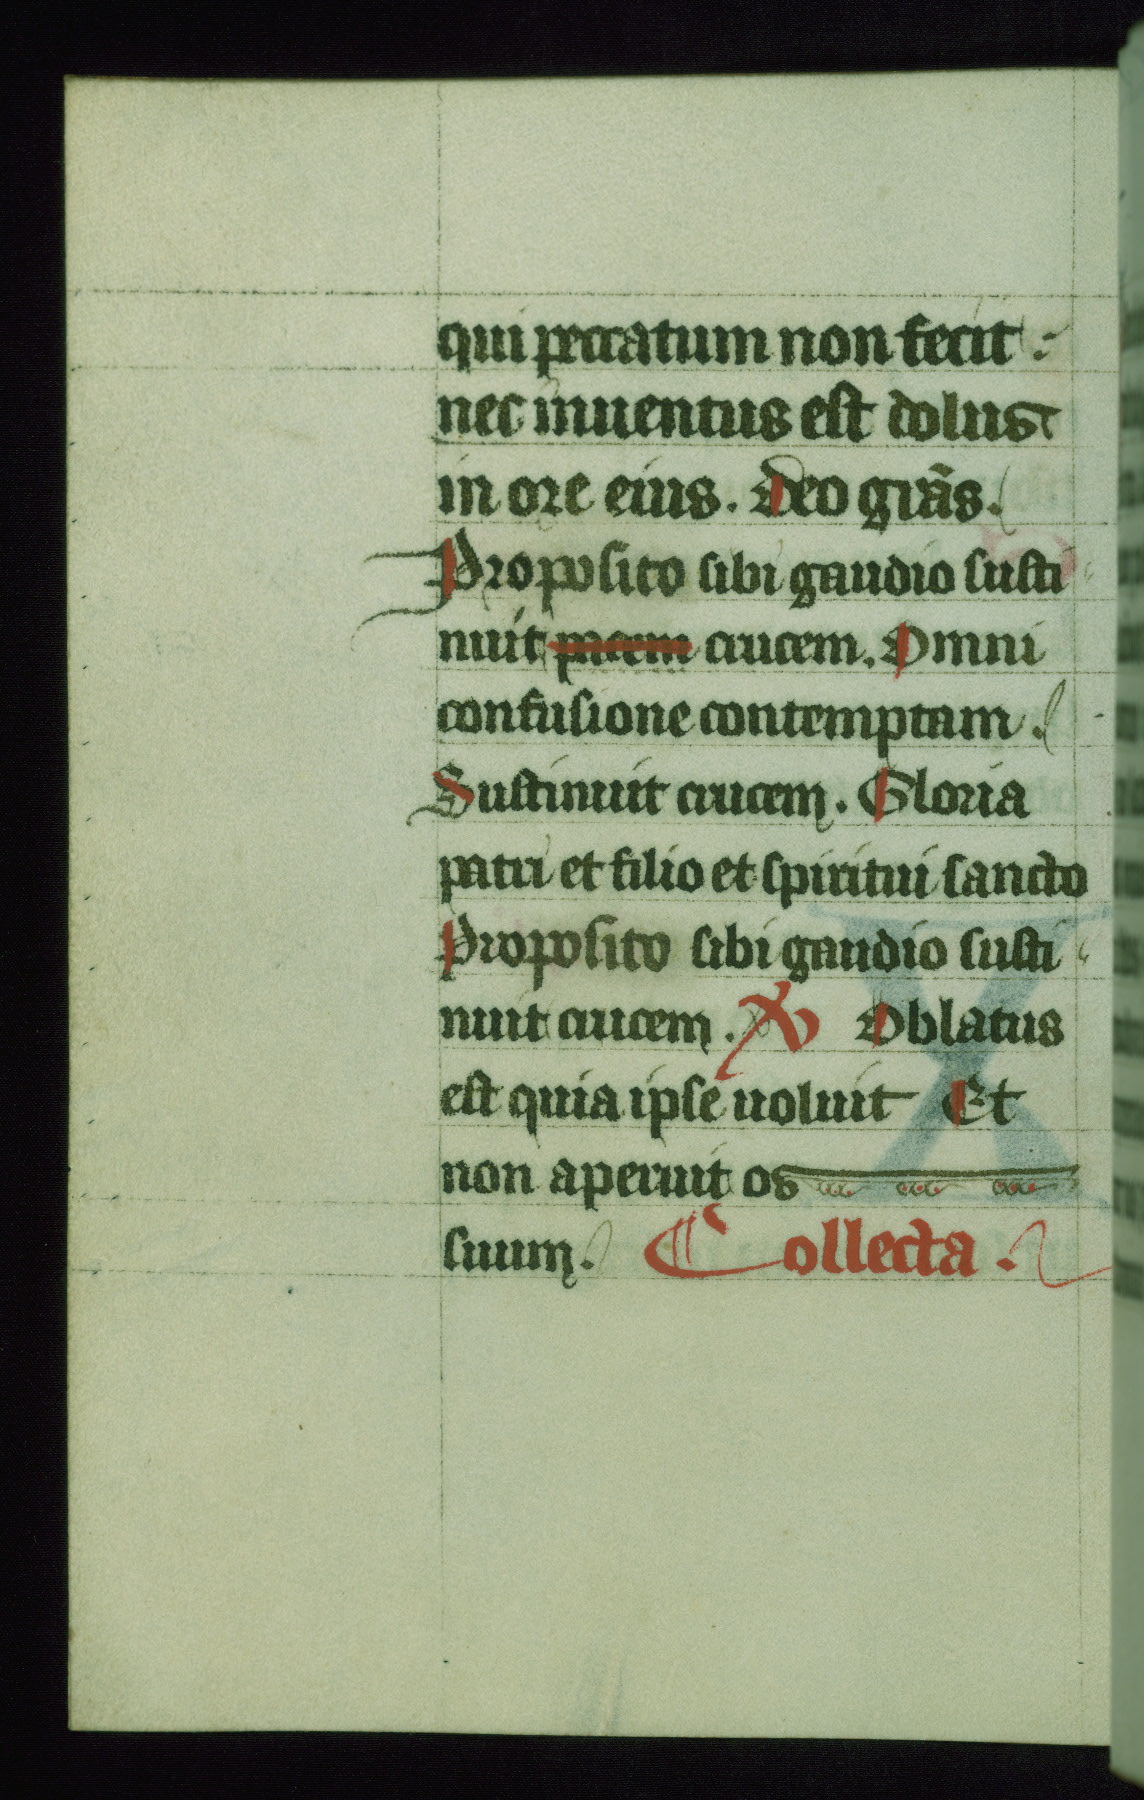 qui peccatum non fecit :
nec inuentus est dolus
in ore eius. Deo gr̃as.
Proposito sibi gaudio susti
nuit crucem. Omni
confusione contemptam.
Sustinuit crucem. Gloria
patri et filio et spiritui sancto
Proposito sibi gaudio susti
nuit crucem. Oblatus
est quia ipse uoluit Et
non aperuit os
suum. Collecta.